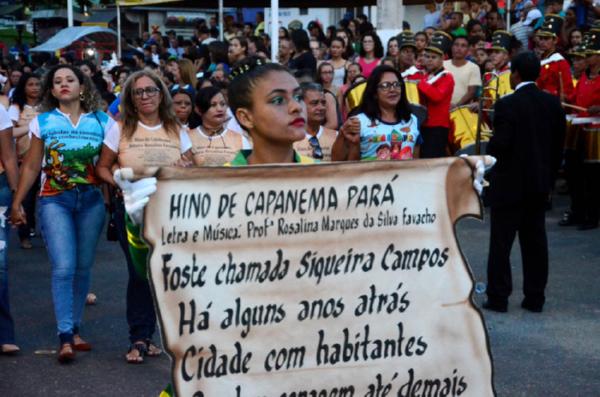 HINO DE CAPANEMA PARÁ
Letra e Música: Profª Rosalina Marques da Silva Favacho
Foste chamada Siqueira Campos
Há alguns anos atrás
Cidade com habitantes
até demais